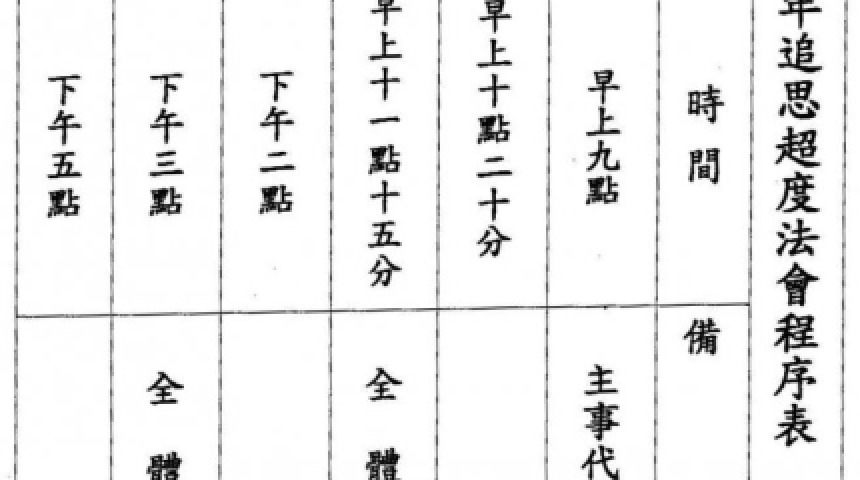 年追思超度法會程序表
時間
備
早上九點
主事代
早上十點二十分
早上十一點十五分
全體
下午二點
下午三點
全體
下午五點